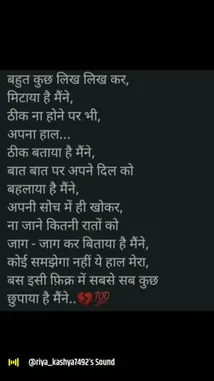 बहुत कुछ लिख लिख कर,
मिटाया है मैंने,
ठीक ना होने पर भी,
अपना हाल...
ठीक बताया है मैंने,
बात बात पर अपने दिल को
बहलाया है मैंने,
अपनी सोच में ही खोकर,
ना जाने कितनी रातों को
जाग - जाग कर बिताया है मैंने,
कोई समझेगा नहीं ये हाल मेरा,
बस इसी फ़िक्र में सबसे सब कुछ
छुपाया है मैंने..💔💯
@riya_kashya7492's Sound